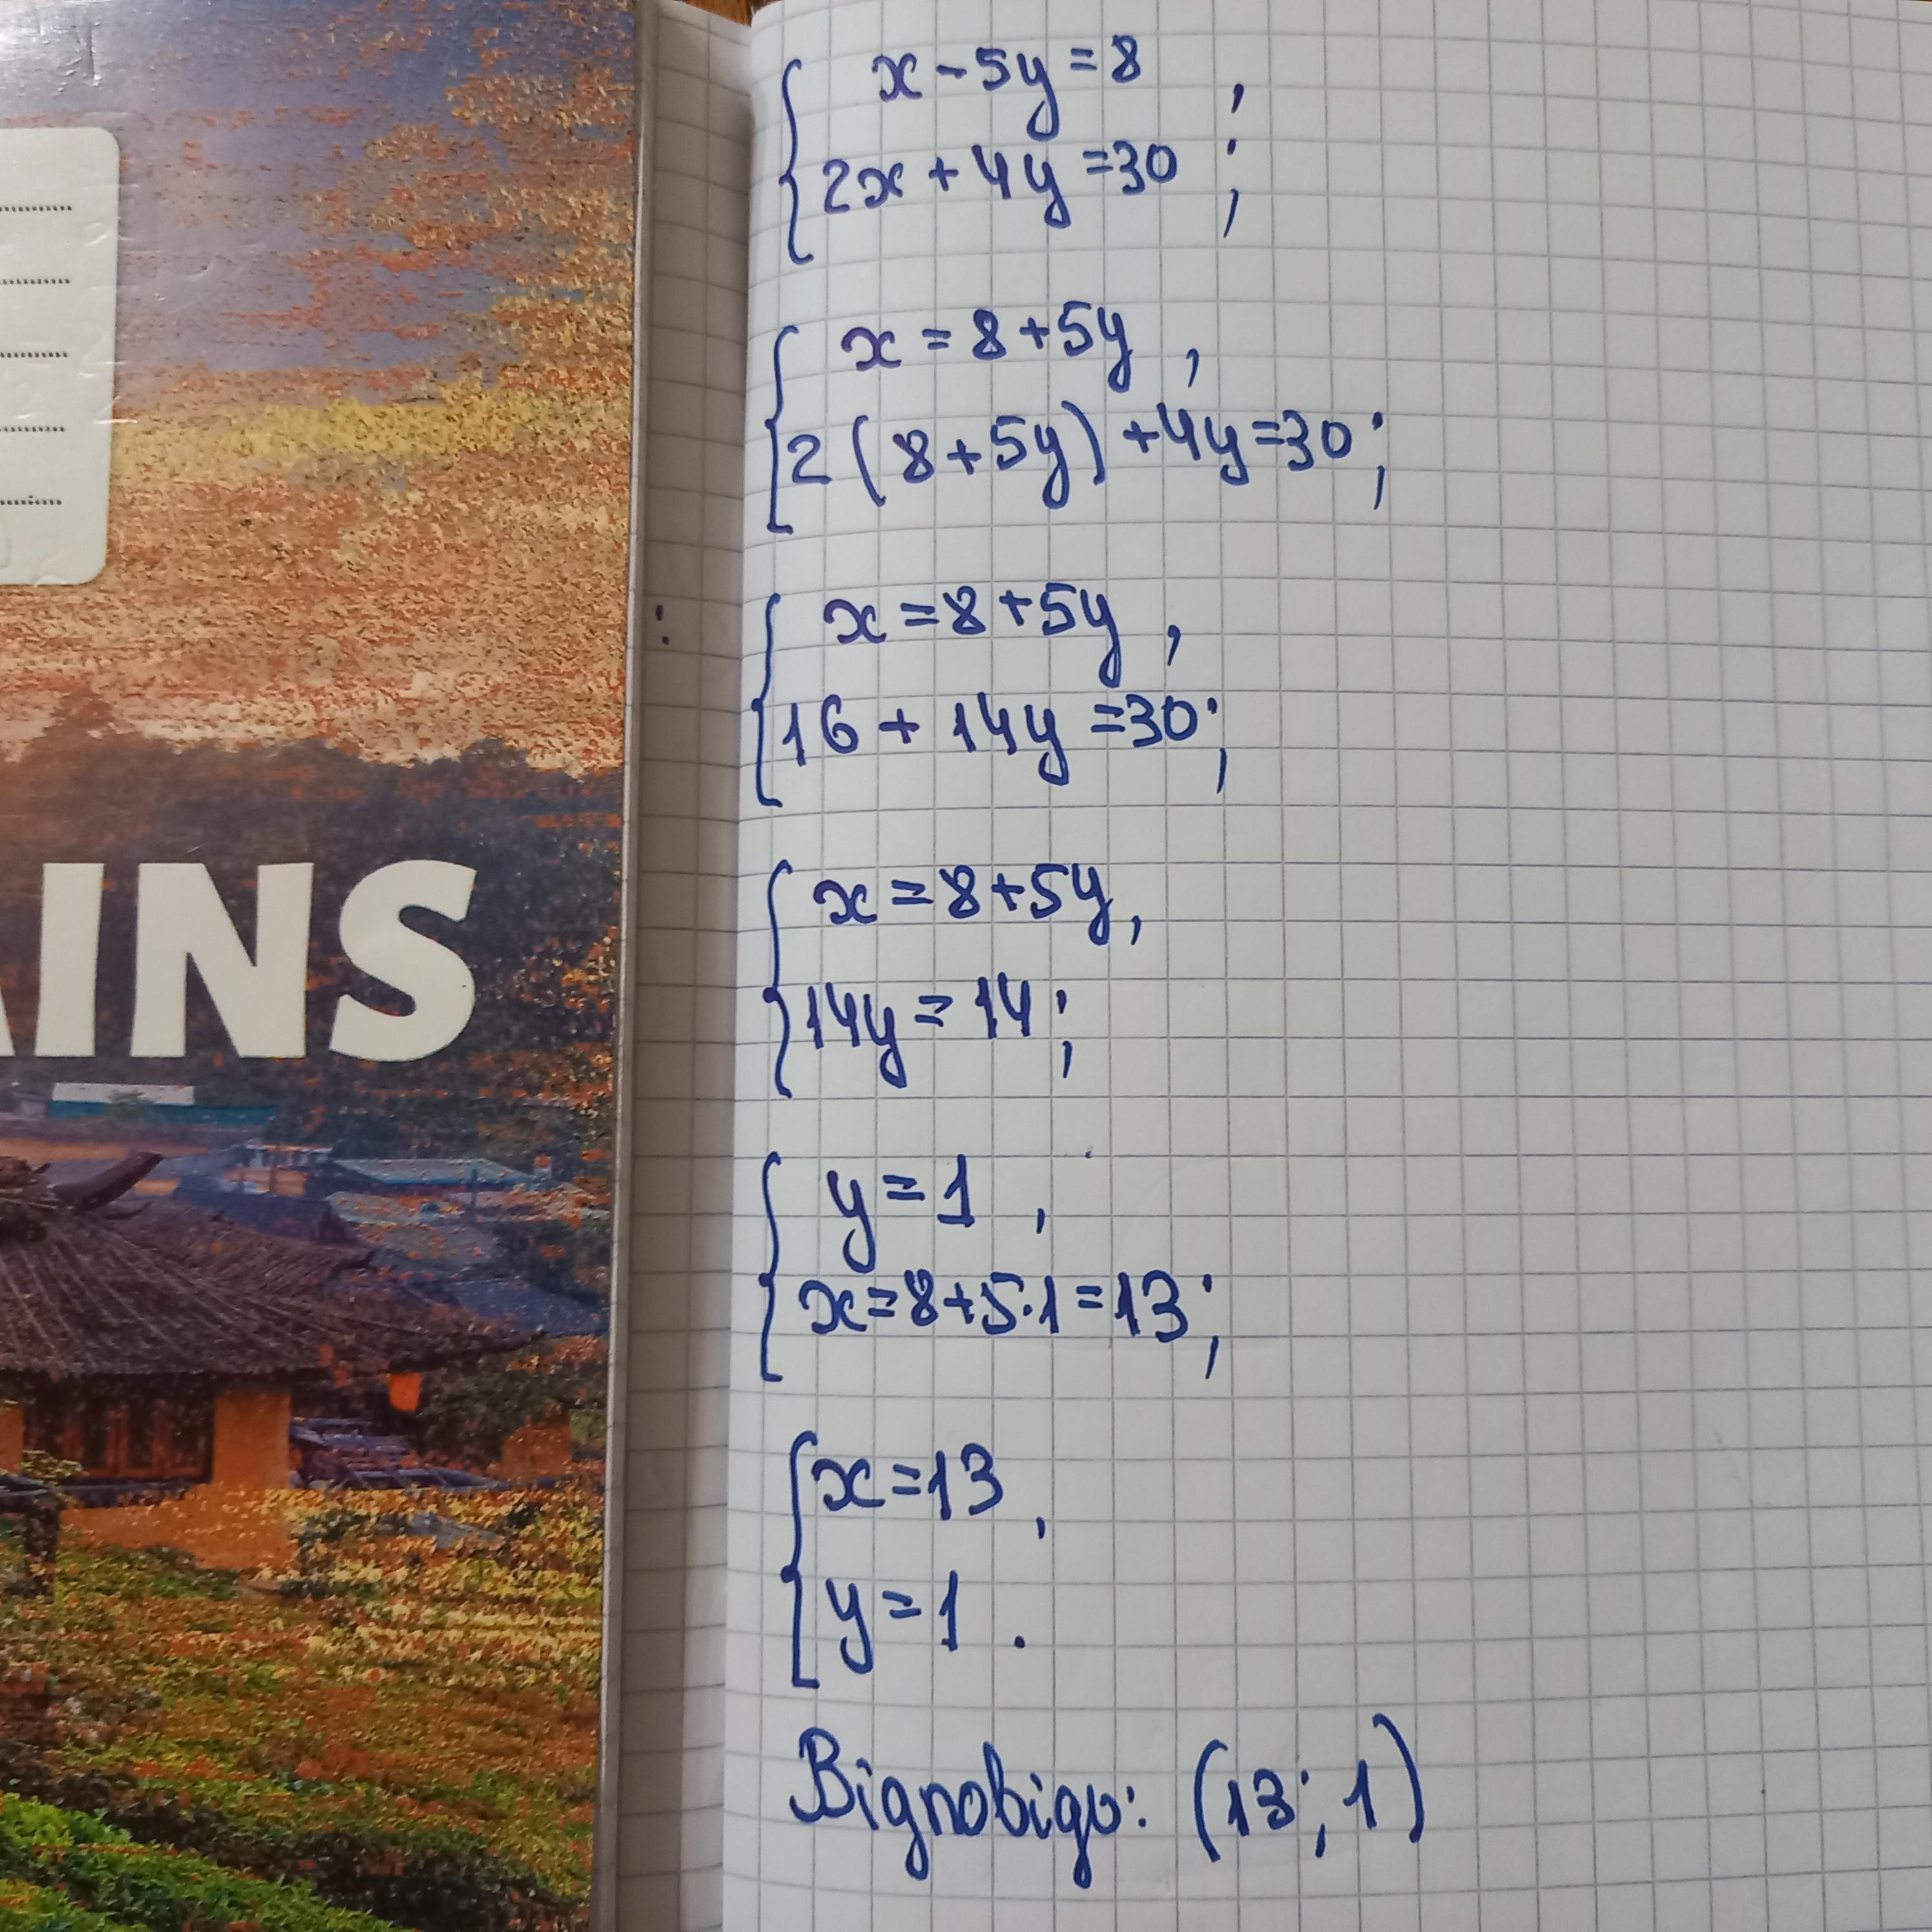 AINS
x - 5y = 8 ,
2x + 4y = 30 ;
x = 8 + 5y ,
2 ( 8 + 5y ) + 4y = 30 ;
x = 8 + 5y ,
16 + 14y = 30 ;
x = 8 + 5y ,
14y = 14 ;
y = 1 ,
x = 8 + 5 · 1 = 13 ;
x = 13 ,
y = 1 .
Відповідь: (13; 1)